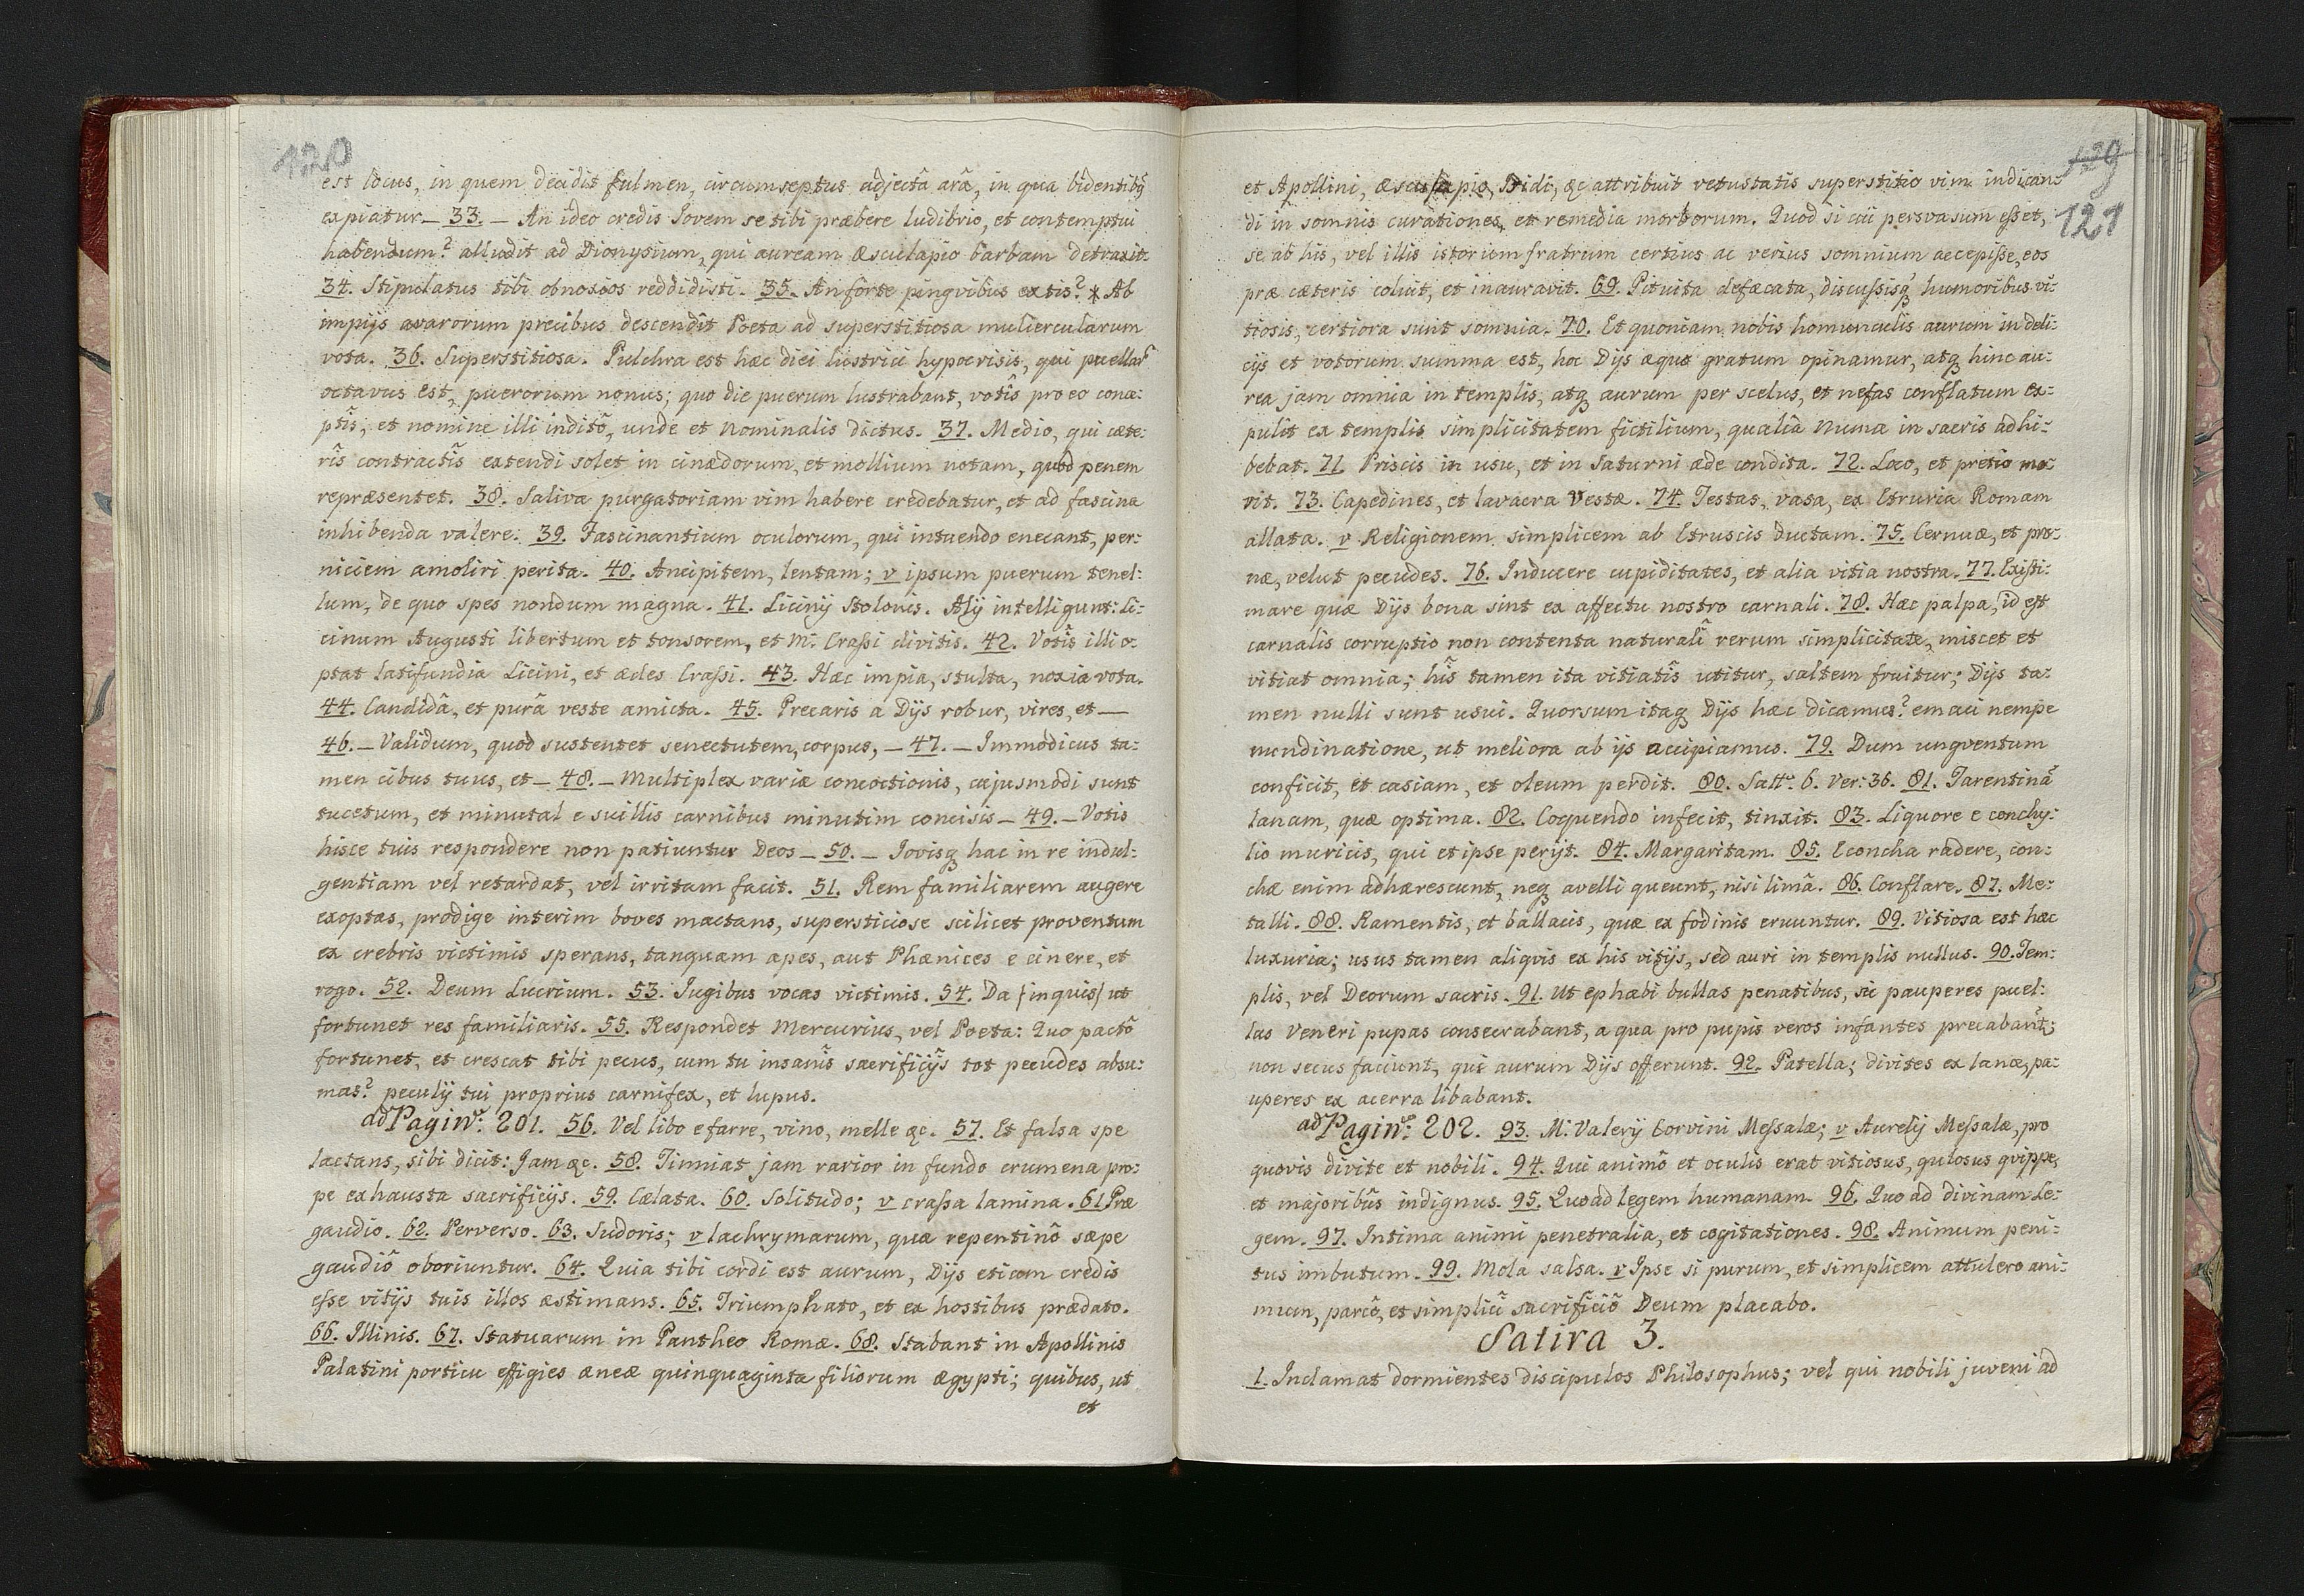 120
est locus, in quem decidit fulmen, circumseptus adjectâ arâ, in qua bidentibq
expiatur_ 33. _ An ideo credis Jovem se tibi præbere ludibrio, et contemptui
habendum? alludit ad Dionysium, qui auream Æsculapio barbam detraxit.
34. Stipulatus tibi obnoxios reddidisti. 35. An forte pingvibus extis? * Ab
impijs avarorum precibus descendit Poeta ad superstitiosa muliercularum
vota. 36. Superstitiosa. Pulchra est hæc diei lustrici hypocrisis, qui puellar
octavus est, puerorum nonus; quo die puerum lustrabant, votis pro eo conce:
ptis, et nomine illi inditô, unde et Nominalis dictus. 37. Medio, qui cæte:
ris contractis extendi solet in cinædorum, et mollium notam, quod penem
repræsentet. 38. Saliva purgatoriam vim habere credebatur, et ad fascina
inhibenda valere. 39. Fascinantium oculorum, qui intuendo enecant, per:
niciem amoliri perita. 40. Ancipitem, lentam; v ipsum puerum tenel:
lum, de quo spes nondum magna. 41. Licinij Stolonis. Alij intelligunt: Li:
cinum Augusti libertum et tonsorem, et M. Crassi divitis. 42. Votis illi o:
ptat latifundia Licini, et ædes Crassi. 43. Hæc impia, stulta, noxia vota.
44. Candidâ, et purâ veste amicta. 45. Precaris a Dijs robur, vires, et _
46. _ Validum, quod sustentet senectutem, corpus, _ 47. _ Immodicus ta:
men cibus tuus, et _ 48. _ Multiplex variæ concoctionis, cujusmodi sunt
tucetum, et minutal e suillis carnibus minutim concisis _ 49. _ Votis
hisce tuis respondere non patiuntur Deos _ 50. _ Jovisq hac in re indul:
gentiam vel retardat, vel irritam facit. 51. Rem familiarem augere
exoptas, prodige interim boves mactans, supersticiose scilicet proventum
ex crebris victimis sperans, tanquam apes, aut Phænices e cinere, et
rogo. 52. Deum Lucrium. 53. Jugibus vocas victimis. 54. Da (inquis) ut
fortunet res familiaris. 55. Respondet Mercurius, vel Poeta: Quo pactô
fortunet, et crescat tibi pecus, cum tu insanis sacrificijs tot pecudes absu:
mas? peculij tui proprius carnifex, et lupus.
ad Pagin: 201. 56. Vel libo e farre, vino, melle &c. 57. Et falsa spe
lactans, sibi dicit: Jam &c. 58. Tinniat jam rarior in fundo crumena pro:
pe exhausta sacrificijs. 59. Cælata. 60. Solitudo; v crassa lamina. 61. Præ
gaudio. 62. Perverso. 63. Sudoris; v lachrymarum, quæ repentinô sæpe
gaudiô oboriuntur. 64. Quia tibi cordi est aurum, Dijs eticam credis
esse vitijs tuis illos æstimans. 65. Triumphato, et ex hostibus prædato.
66. Illinis. 67. Statuarum in Pantheo Romæ. 68. Stabant in Apollinis
Palatini porticu effigies æneæ quinquaginta filiorum Ægypti; quibus, ut
et
129
121
et Apollini, Æsculapio, Isidi, &c attribuit vetustatis superstitio vim indican:
di in somnis curationes, et remedia morborum. Quod si cui persvasum esset,
se ab his, vel illis istorum fratrum certius ac verius somnium accepisse, eos
præ cæteris coluit, et inauravit. 69. Pituita defæcata, discussisq humoribus vi:
tiosis, certiora sunt somnia. 70. Et quoniam nobis homunculis aurum in deli:
cijs et votorum summa est, hoc Dijs æque gratum opinamur, atq hinc au:
rea jam omnia in templis, atq aurum per scelus, et nefas conflatum ex:
pulit ex templis simplicitatem fictilium, qualia Numa in sacris adhi:
bebat. 71. Priscis in usu, et in Saturni æde condita. 72. Loco, et pretio mo:
vit. 73. Capedines, et lavacra Vestæ. 74. Testas, vasa, ex Etruria Romam
allata. v Religionem simplicem ab Etruscis ductam. 75. Cernuæ, et pro:
næ, velut pecudes. 76. Inducere cupiditates, et alia vitia nostra. 77. Existi:
mare quæ Dijs bona sint ex affectu nostro carnali. 78. Hæc palpa, id est
carnalis corruptio non contenta naturali rerum simplicitate, miscet et
vitiat omnia; his tamen ita vitiatis utitur, saltem fruitur; Dijs ta:
men nulli sunt usui. Quorsum itaq Dijs hæc dicamus? emaci nempe
nundinatione, ut meliora ab ijs accipiamus. 79. Dum ungventum
conficit, et casiam, et oleum perdit. 80. Satt. 6. Ver: 36. 81. Tarentinã
lanam, quæ optima. 82. Coquendo infecit, tinxit. 83. Liquore e conchy:
lio muricis, qui et ipse perijt. 84. Margaritam. 85. E concha radere, con:
chæ enim adhærescunt, neq avelli queunt, nisi limâ. 86. Conflare. 87. Me:
talli. 88. Ramentis, et ballacis, quæ ex fodinis eruuntur. 89. Vitiosa est hæc
luxuria; usus tamen aliqvis ex his vitijs, sed auri in templis nullus. 90. Tem:
plis, vel Deorum sacris. 91. Ut ephæbi bullas penatibus, sic pauperes puel:
las Veneri pupas consecrabant, a qua pro pupis veros infantes precabant;
non secus faciunt, qui aurum Dijs offerunt. 92. Patella; divites ex lance, pa:
uperes ex acerra libabant.
ad Pagin: 202. 93. M. Valerij Corvini Messalæ; v Aurelij Messalæ, pro
quovis divite et nobili. 94. Qui animô et oculis erat vitiosus, gulosus qvippe,
et majoribus indignus. 95. Quo ad legem humanam. 96. Quo ad divinam Le:
gem. 97. Intima animi penetralia, et cogitationes. 98. Animum peni:
tus imbutum. 99. Mola salsa. v Ipse si purum, et simplicem attulero ani:
mum, parcô, et simplici sacrificiô Deum placabo.
Satira 3.
1. Inclamat dormientes discipulos Philosophus; vel qui nobili juveni ad